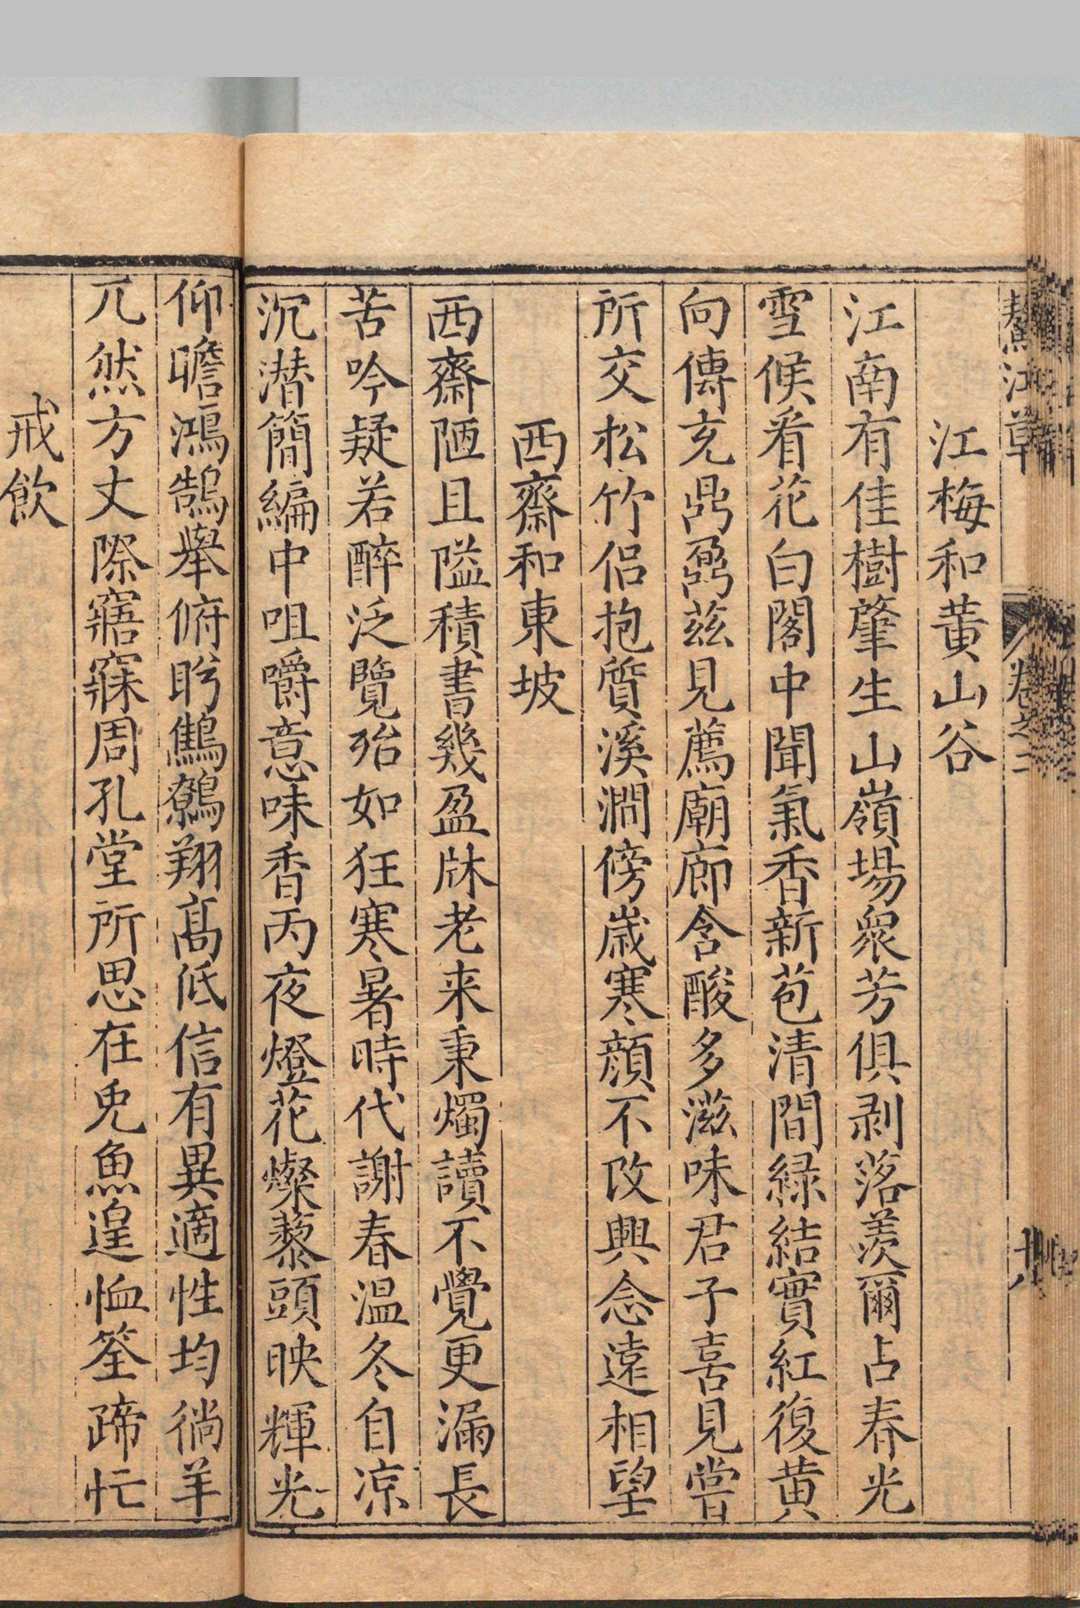 鰲江草 卷之二
江梅和黃山谷
江南有佳樹肇生山嶺場衆芳俱剥落羨爾占春光
雪候看花白閣中聞氣香新苞清間緑結實紅復黄
向傳充鼎鼐茲見薦廟廊含酸多滋味君子喜見嘗
所交松竹侣抱質溪澗傍嵗寒顔不改興念遠相望
西齋和東坡
西齋陋且隘積書幾盈牀老来秉燭讀不覺更漏長
苦吟疑若醉泛覽殆如狂寒暑時代謝春温冬自凉
沉潜簡編中咀嚼意味香丙夜燈花燦藜頭映輝光
仰瞻鴻鵠舉俯盻鷦鷯翔髙低信有異適性均徜羊
兀然方丈際寤寐周孔堂所思在兔魚遑恤筌蹄忙
戒飲